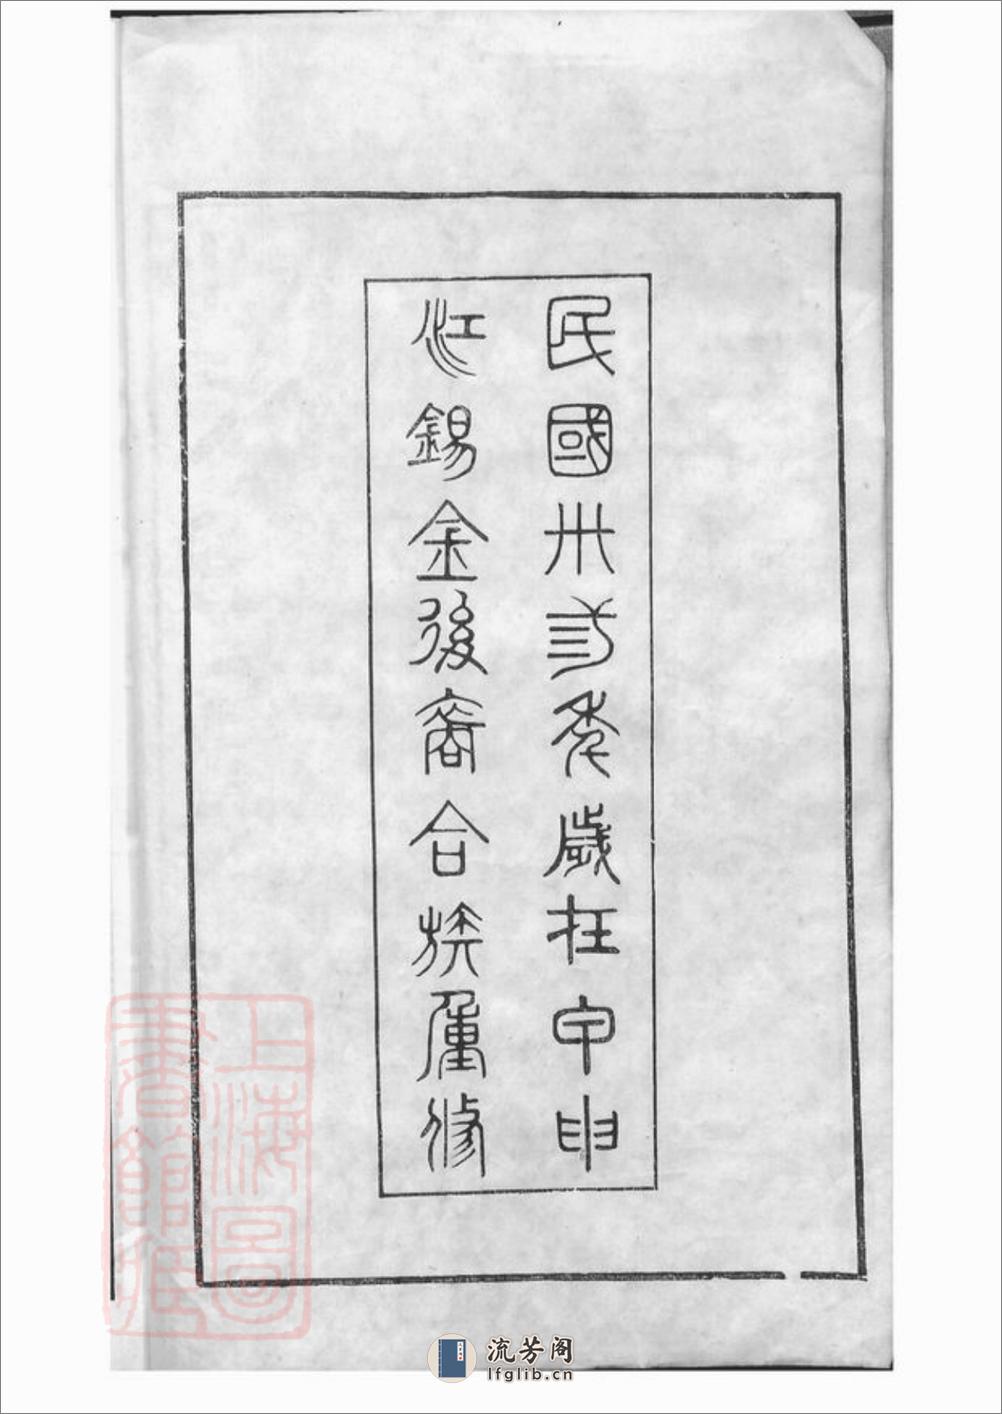 民國卅弎年歲在甲申
江錫金後裔合族重修
上海圖
書館藏
流芳阁
lfglib.cn